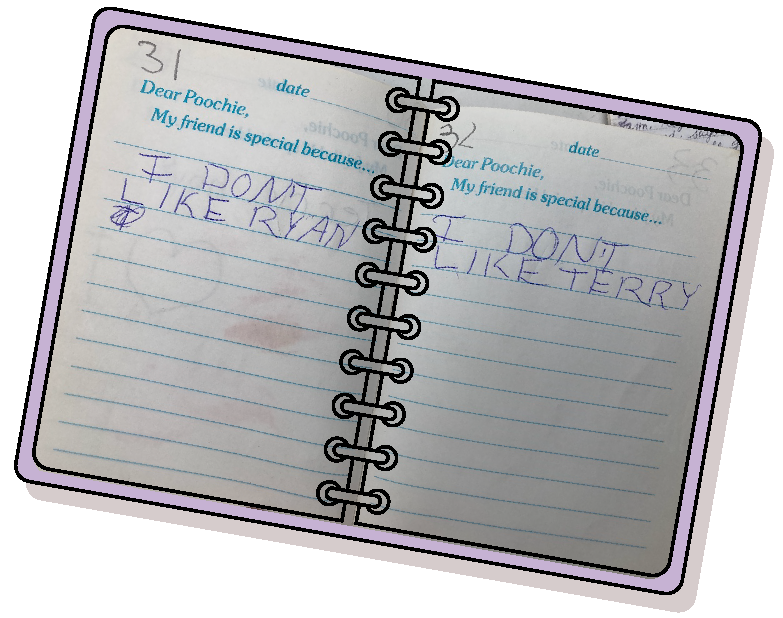 31
date
Dear Poochie,
My friend is special because...
I DON'T
LIKE RYAN
32
date
Dear Poochie,
My friend is special because...
I DON'T
LIKE TERRY